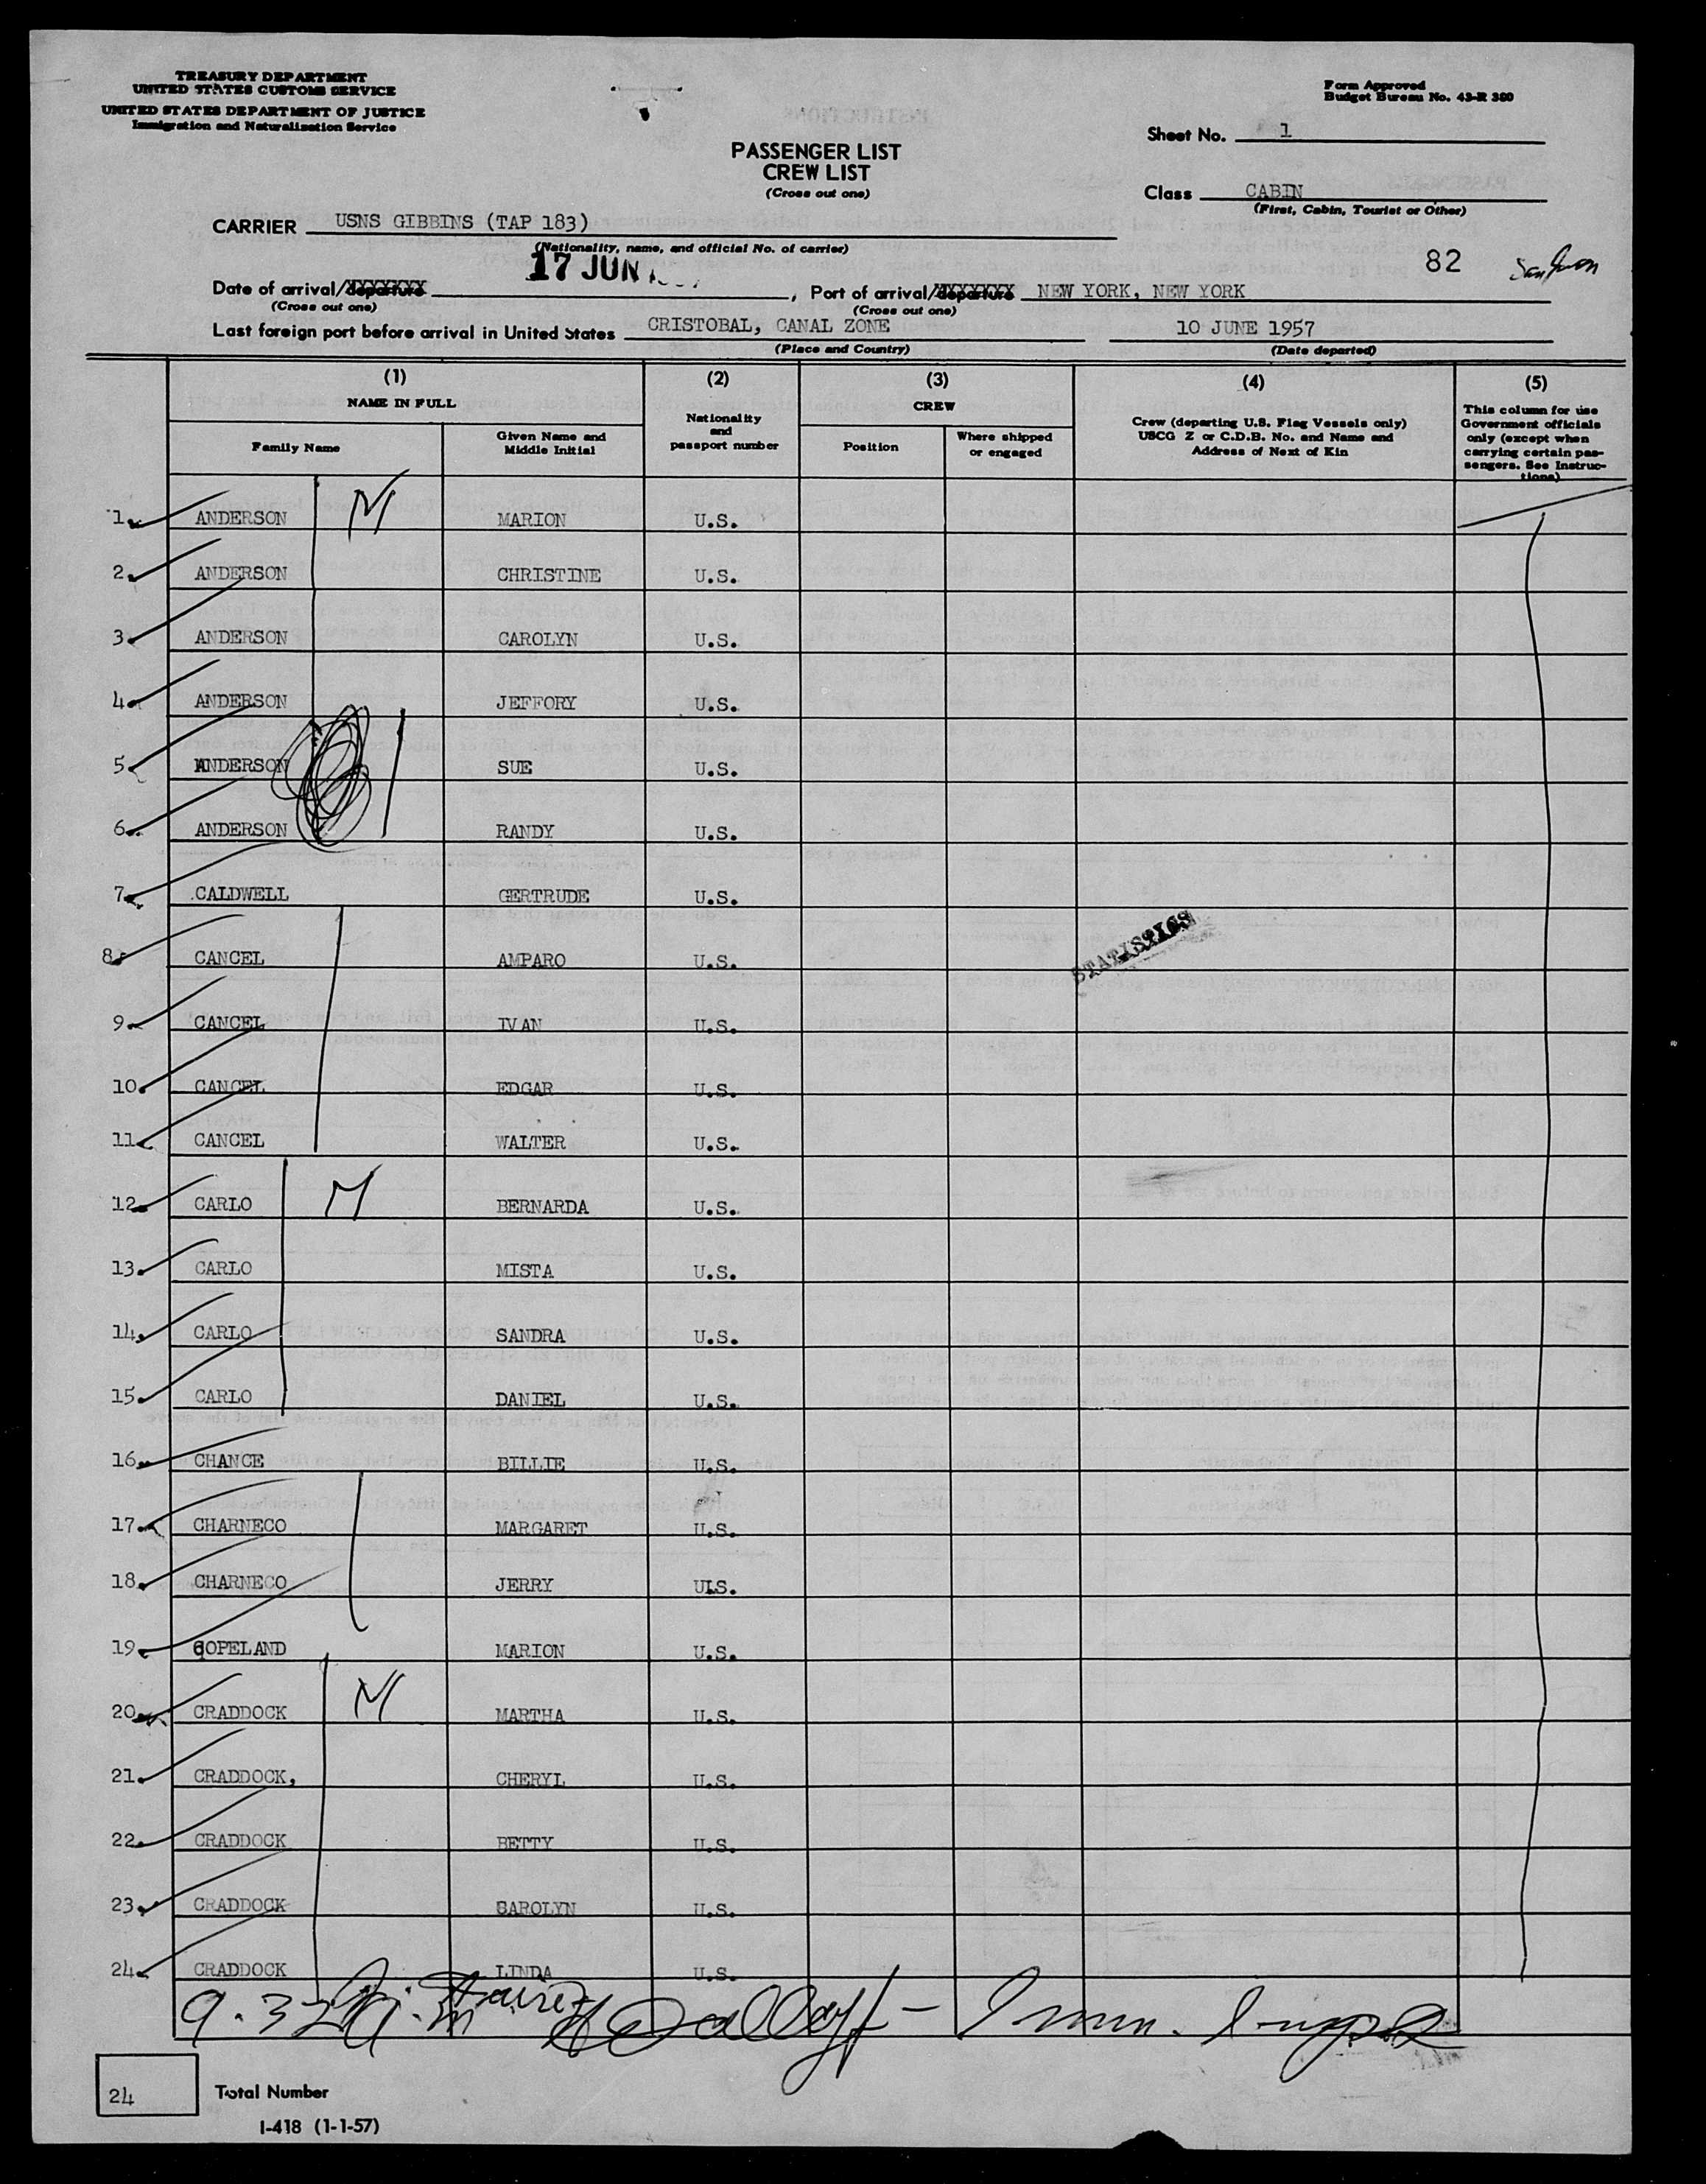 TREASURY DEPARTMENT
UNITED STATES CUSTOMS SERVICE
UNITED STATES DEPARTMENT OF JUSTICE
Immigration and Naturalization Service
Form Approved
Budget Bureau No. 43-R 380
Sheet No. 1
PASSENGER LIST
CREW LIST
(Cross out one)
Class CABIN
(First, Cabin, Tourist or Other)
CARRIER USNS GIBBINS (TAP 183)
(Nationality, name, and official No. of carrier)
17 JUN
82 San Juan
Date of arrival/departure , Port of arrival/departure NEW YORK, NEW YORK
(Cross out one) (Cross out one)
Last foreign port before arrival in United States CRISTOBAL, CANAL ZONE 10 JUNE 1957
(Place and Country) (Date departed)
(1) (2) (3) (4) (5)
NAME IN FULL
Family Name
Given Name and Middle Initial
Nationality and passport number
CREW
Position
Where shipped or engaged
Crew (departing U.S. Flag Vessels only) USCG Z or C.D.B. No. and Name and Address of Next of Kin
This column for use Government officials only (except when carrying certain passengers. See Instructions)
1. ANDERSON M MARION U.S.
2. ANDERSON CHRISTINE U.S.
3. ANDERSON CAROLYN U.S.
4. ANDERSON JEFFORY U.S.
5. ANDERSON SUE U.S.
6. ANDERSON RANDY U.S.
7. CALDWELL GERTRUDE U.S.
STATISTICS
8. CANCEL AMPARO U.S.
9. CANCEL IVAN U.S.
10. CANCEL EDGAR U.S.
11. CANCEL WALTER U.S.
12. CARLO M BERNARDA U.S.
13. CARLO MISTA U.S.
14. CARLO SANDRA U.S.
15. CARLO DANIEL U.S.
16. CHANCE BILLIE U.S.
17. CHARNECO MARGARET U.S.
18. CHARNECO JERRY U.S.
19. COPELAND MARION U.S.
20. CRADDOCK M MARTHA U.S.
21. CRADDOCK, CHERYL U.S.
22. CRADDOCK BETTY U.S.
23. CRADDOCK CAROLYN U.S.
24. CRADDOCK LINDA U.S.
9.32 a.m. - Imm. Insp
24 Total Number
I-418 (1-1-57)